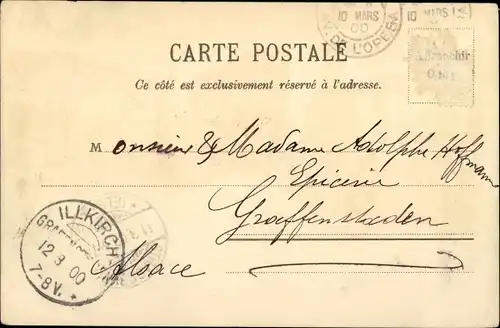 10 MARS
00
AV. DE L'OPERA
10 MARS
CARTE POSTALE
Ce côté est exclusivement réservé à l'adresse.
Affranchir
Monsieur & Madame Adolphe Hoffmann
Epicerie
Graffenstaden
Alsace
ILLKIRCH
12 3 00
7-8V.